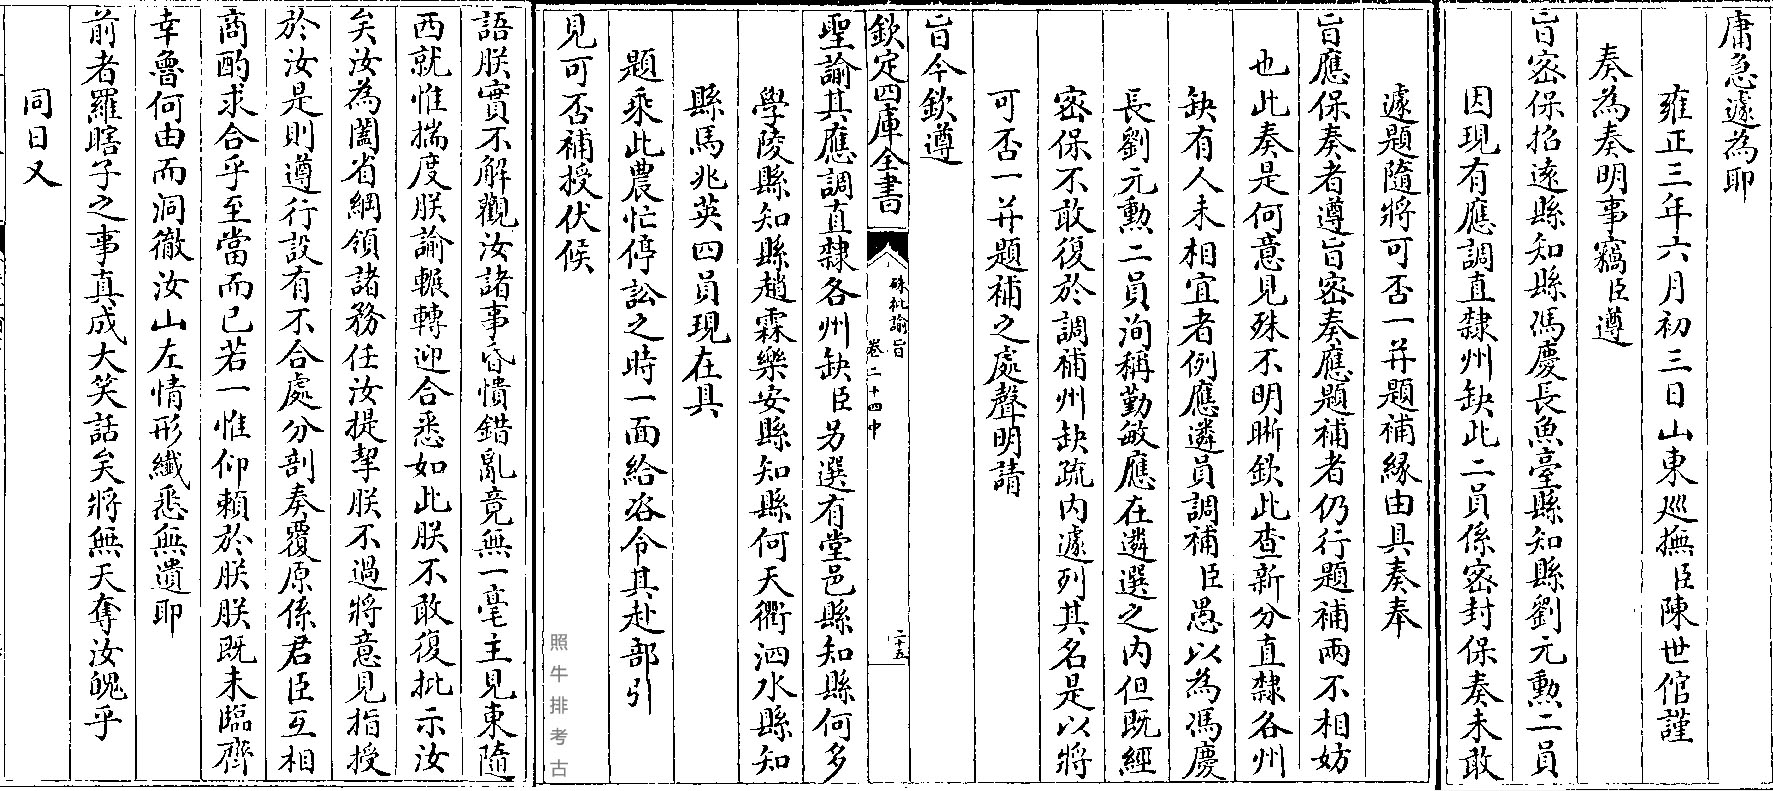 庸急遽為耶
雍正三年六月初三日山東巡撫臣陳世倌謹
奏為奏明事竊臣遵
旨密保招遠縣知縣馮慶長魚臺縣知縣劉元勲二員
因現有應調直隸州缺此二員係密封保奏未敢
遽題隨將可否一并題補縁由具奏奉
旨應保奏者遵旨密奏應題補者仍行題補兩不相妨
也此奏是何意見殊不明晰欽此查新分直隸各州
缺有人未相宜者例應遴員調補臣愚以為馮慶
長劉元勲二員洵稱勤敏應在遴選之內但既經
密保不敢復於調補州缺疏內遽列其名是以將
可否一并題補之處聲明請
旨今欽遵
欽定四庫全書
硃批諭旨
卷二十四中
二十五
聖諭其應調直隸各州缺臣另選有堂邑縣知縣何多
學陵縣知縣趙霖樂安縣知縣何天衢泗水縣知
縣馬兆英四員現在具
題乘此農忙停訟之時一面給咨令其赴部引
見可否補授伏候
照牛排考古
語朕實不解觀汝諸事昏憒錯亂竟無一毫主見東隨
西就惟揣度朕諭輾轉迎合悉如此朕不敢復批示汝
矣汝為闔省綱領諸務任汝提挈朕不過將意見指授
於汝是則遵行設有不合處分剖奏覆原係君臣互相
商酌求合乎至當而已若一惟仰賴於朕朕既未臨齊
幸魯何由而洞徹汝山左情形纖悉無遺耶
前者羅瞎子之事真成大笑話矣將無天奪汝魄乎
同日又